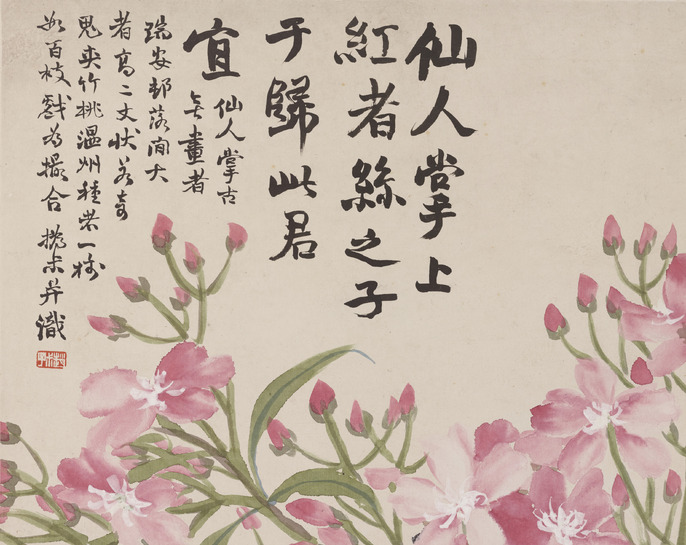 仙人掌上
紅者絲之子
于歸此君
宜
仙人掌古
无畫者
瑞安邨落閒大
者高二丈狀若奇
鬼夾竹桃溫州種者一樹
數百枝戲為撮合 撝尗并識